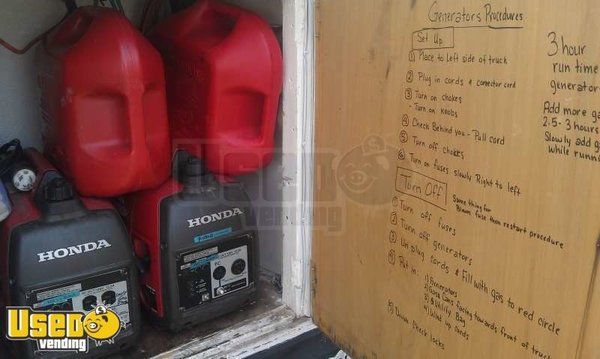 Generators Procedures
Set Up
① Place to left side of truck
② Plug in cords & connector cord
③ Turn on chokes
- Turn on knobs
④ Check Behind you - Pull cord
⑤ Turn off chokes
⑥ Turn on fuses slowly Right to left
Turn Off
Same thing for
Blown fuse then restart procedure
① Turn off fuses
② Turn off generators
③ Unplug cords & Fill with gas to red circle
④ Put in:
① Generators
② Gas Cans facing towards front of truck
③ Utility Bag
④ Wind up cords
⑤ Double Check locks
3 hour
run time
generator
Add more ga
2.5-3 hours
Slowly add g
while runnin
HONDA
HONDA
USED
VENDING
USED
VENDING